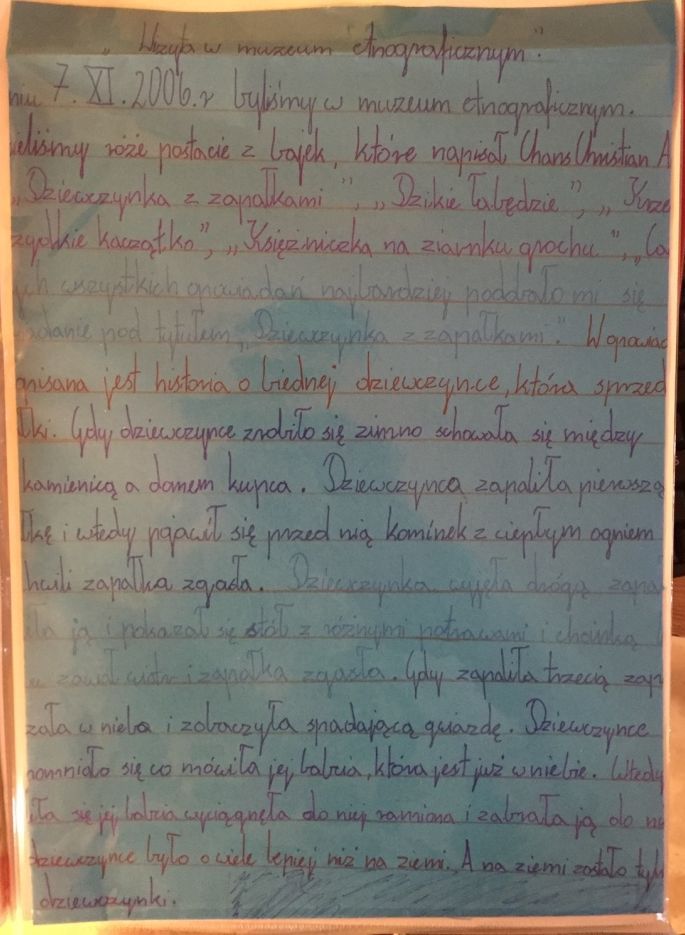 „Wizyta w muzeum etnograficznym."
niu 7.XI.2006.r byliśmy w muzeum etnograficznym.
ieliśmy róże postacie z bajek, które napisał Chans Christian A
„Dziewczynka z zapałkami", „Dzikie łabędzie", „Krze
zydkie kaczątko", „Księżniczka na ziarnku grochu", „Ca
ch wszystkich opowiadań najbardziej poddało mi się
adanie pod tytułem „Dziewczynka z zapałkami." W opowiad
opisana jest historia o biednej dziewczynce, która sprzed
łki. Gdy dziewczynce zrobiło się zimno schowała się między
kamienicą a domem kupca. Dziewczynca zapaliła pierwszą
łkę i wtedy pojawił się przed nią kominek z ciepłym ogniem
hwili zapałka zgasła. Dziewczynka wyjęła drógą zapa
iła ją i pokazał się stół z różnymi potrawami i choinką
zawał wiatr i zapałka zgasła. Gdy zapaliła trzecią zap
zała w niebo i zobaczyła spadającą gwiazdę. Dziewczynce
pomniało się co mówiła jej babcia, która jest już w niebie. Wtedy
iła się jej babcia wyciągnęła do niej ramiona i zabrała ją do n
dziewczynce było o wiele lepiej niż na ziemi. A na ziemi zostało tyl
dziewczynki.